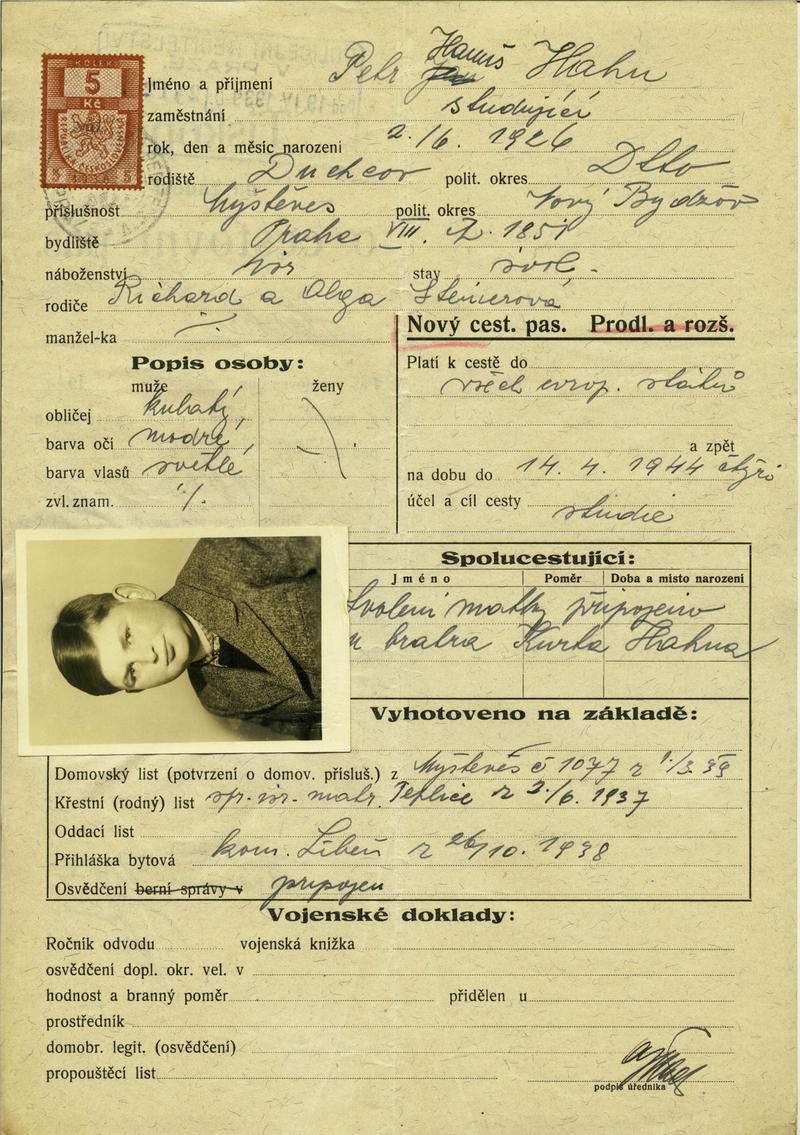 KOLEK
5
Kč
Jméno a příjmení Petr Hanuš Hahn
zaměstnání studující
rok, den a měsíc narození 2./6. 1926
rodiště Duchcov polit. okres Dtto
příslušnost Myštěves polit. okres Nový Bydžov
bydliště Praha VIII. Z. 1851
náboženství izr stav svob.
rodiče Richard a Olga Steinerová
manžel-ka ./.
Nový cest. pas. Prodl. a rozš.
Popis osoby:
muže ženy
obličej kulatý,
barva očí modré,
barva vlasů světlé
zvl. znam. ./.
Platí k cestě do
všech evrop. států
a zpět
na dobu do 14. 4. 1944 čtyři
účel a cíl cesty studie
Spolucestující:
Jméno Poměr Doba a místo narození
Svolení matky připojeno
u bratra Kurta Hahna
Vyhotoveno na základě:
Domovský list (potvrzení o domov. přísluš.) z Myštěves č 1077 z 1/3 39
Křestní (rodný) list izr. matr. Teplice z 2./6. 1937
Oddací list
Přihláška bytová kom. Libeň z 26/10. 1938
Osvědčení berní správy v připojen
Vojenské doklady:
Ročník odvodu vojenská knížka
osvědčení dopl. okr. vel. v
hodnost a branný poměr přidělen u
prostředník
domobr. legit. (osvědčení)
propouštěcí list
podpis úředníka